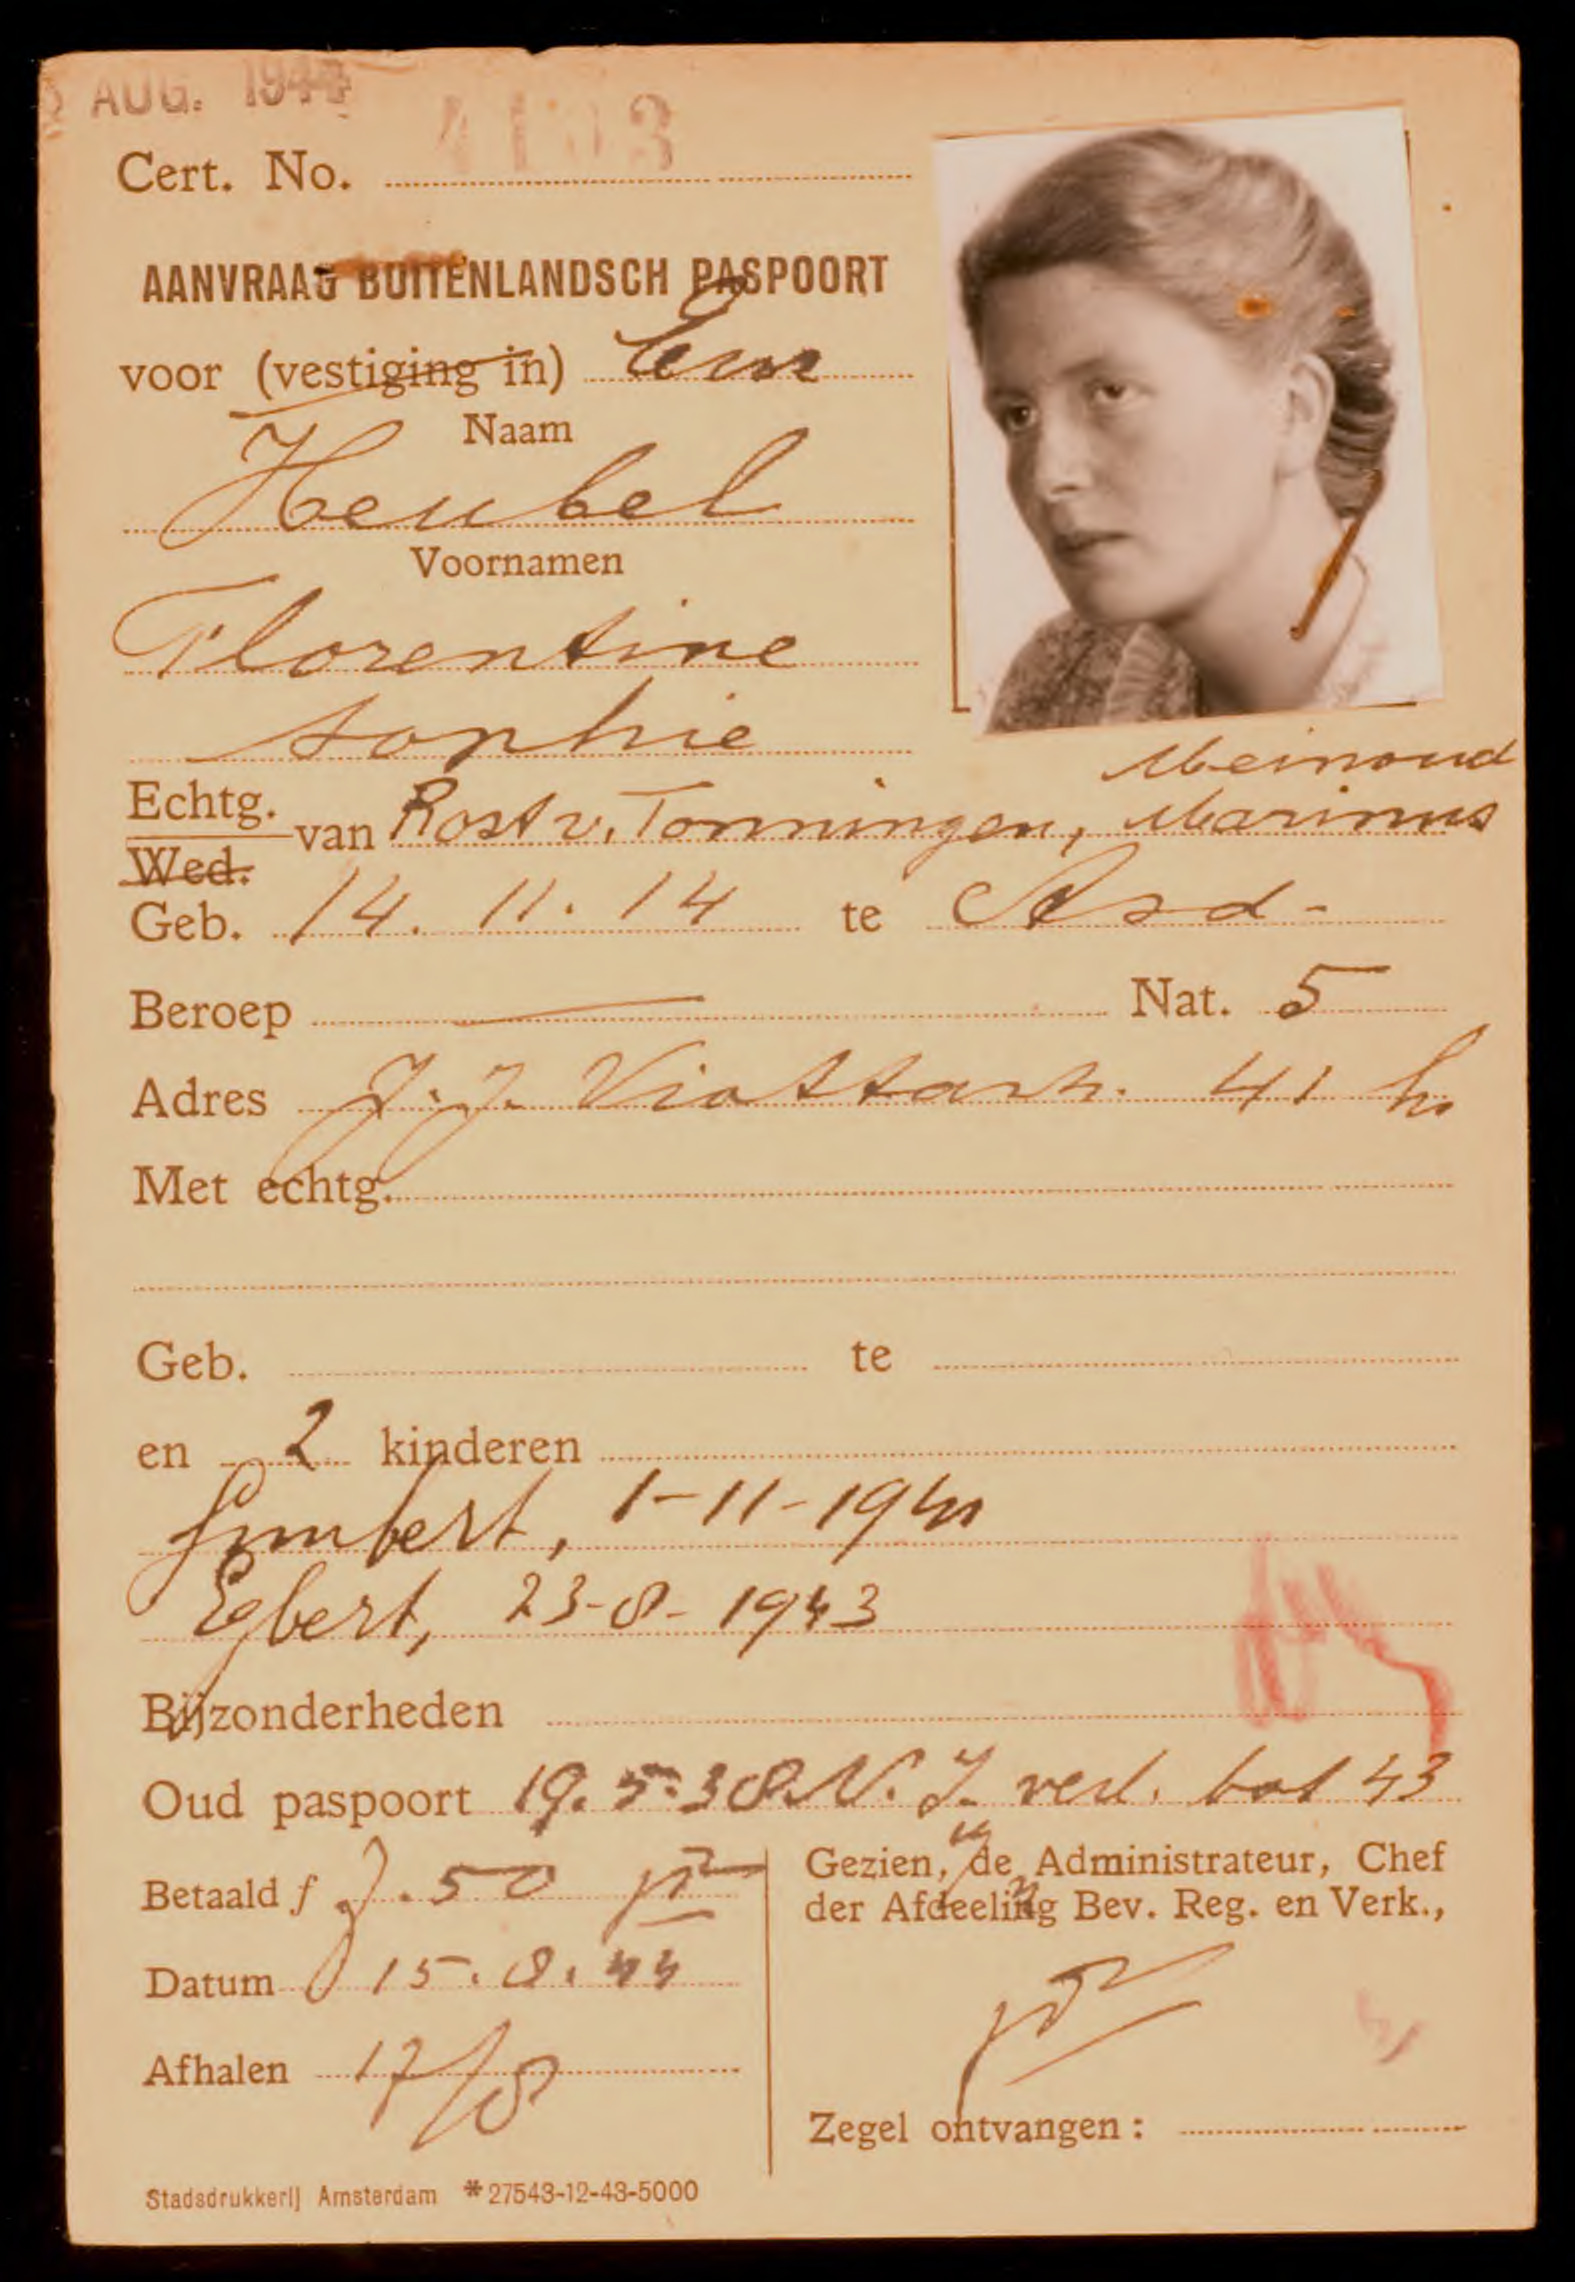 AUG. 1944
Cert. No.
AANVRAAG BUITENLANDSCH PASPOORT
voor (vestiging in) Eur
Naam
Heubel
Voornamen
Florentine
Sophie
Meinoud
Echtg. van Rost v. Tonningen, Marinus
Wed.
Geb. 14. 11. 14 te Asd-
Beroep — Nat. 5
Adres J.J. Viottastr. 41 hs
Met echtg.
Geb. te
en 2 kinderen
Grimbert, 1-11-1941
Egbert, 23-8-1943
Bijzonderheden
Oud paspoort 19.5.38 N.I. verl. tot 43
Betaald f 7.50
Gezien, de Administrateur, Chef
der Afdeeling Bev. Reg. en Verk.,
Datum 15.8.44
Afhalen 17/8
Zegel ontvangen:
Stadsdrukkerij Amsterdam *27543-12-43-5000